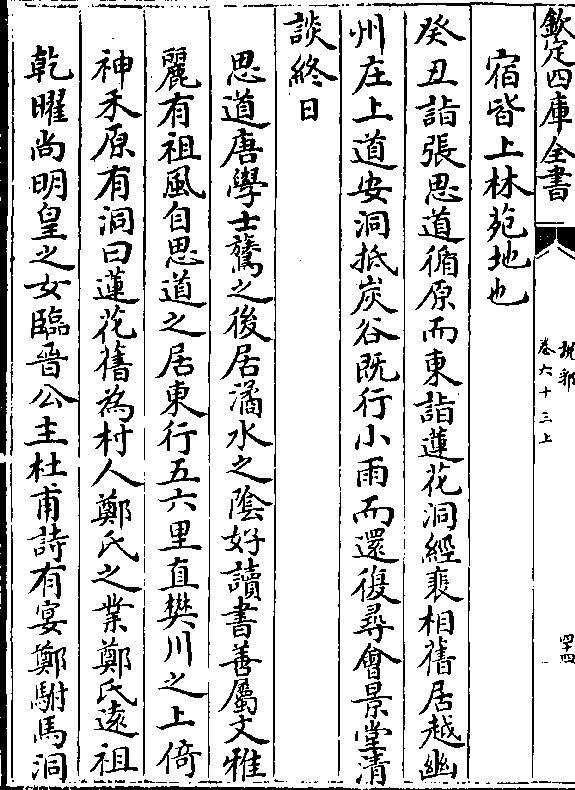 欽定四庫全書
說郛
卷六十三上
四十四
宿皆上林苑地也
癸丑詣張思道循原而東詣蓮花洞經裴相舊居越幽
州庄上道安洞抵炭谷既行小雨而還復尋會景堂清
談終日
思道唐學士鷟之後居潏水之陰好讀書善屬文雅
麗有祖風自思道之居東行五六里直樊川之上倚
神禾原有洞曰蓮花舊為村人鄭氏之業鄭氏遠祖
乾曜尚明皇之女臨晉公主杜甫詩有宴鄭駙馬洞